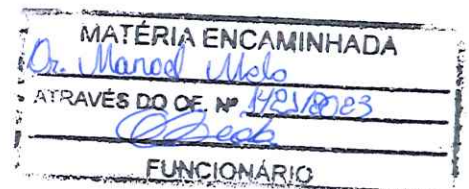 MATÉRIA ENCAMINHADA
Dr. Manoel Melo
ATRAVÉS DO OF. Nº 1421/2023
FUNCIONÁRIO